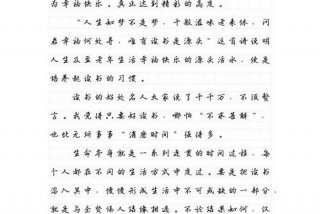 为幸福快乐。真正达到精彩的高度。
“人生如梦不是梦，千般滋味老来休，问
君幸福何处寻，唯有读书是源头”这首诗说明
人生及至老年生活幸福快乐的源头活水，便是
培养起读书的习惯。
读书的好处名人大家说了千千万，不须赘
言。我觉得只要好读书，哪怕“不求甚解”，
也比无所事事“消磨时间”强得多。
生命本身就是一系列连贯的时间过程，每
个人都在不同的生活方式中度过。要是把读书
溶入其中，慢慢形成生活中不可或缺的一部分，
就是与圣贤伟人结缘相遇。不论结果如何，汉